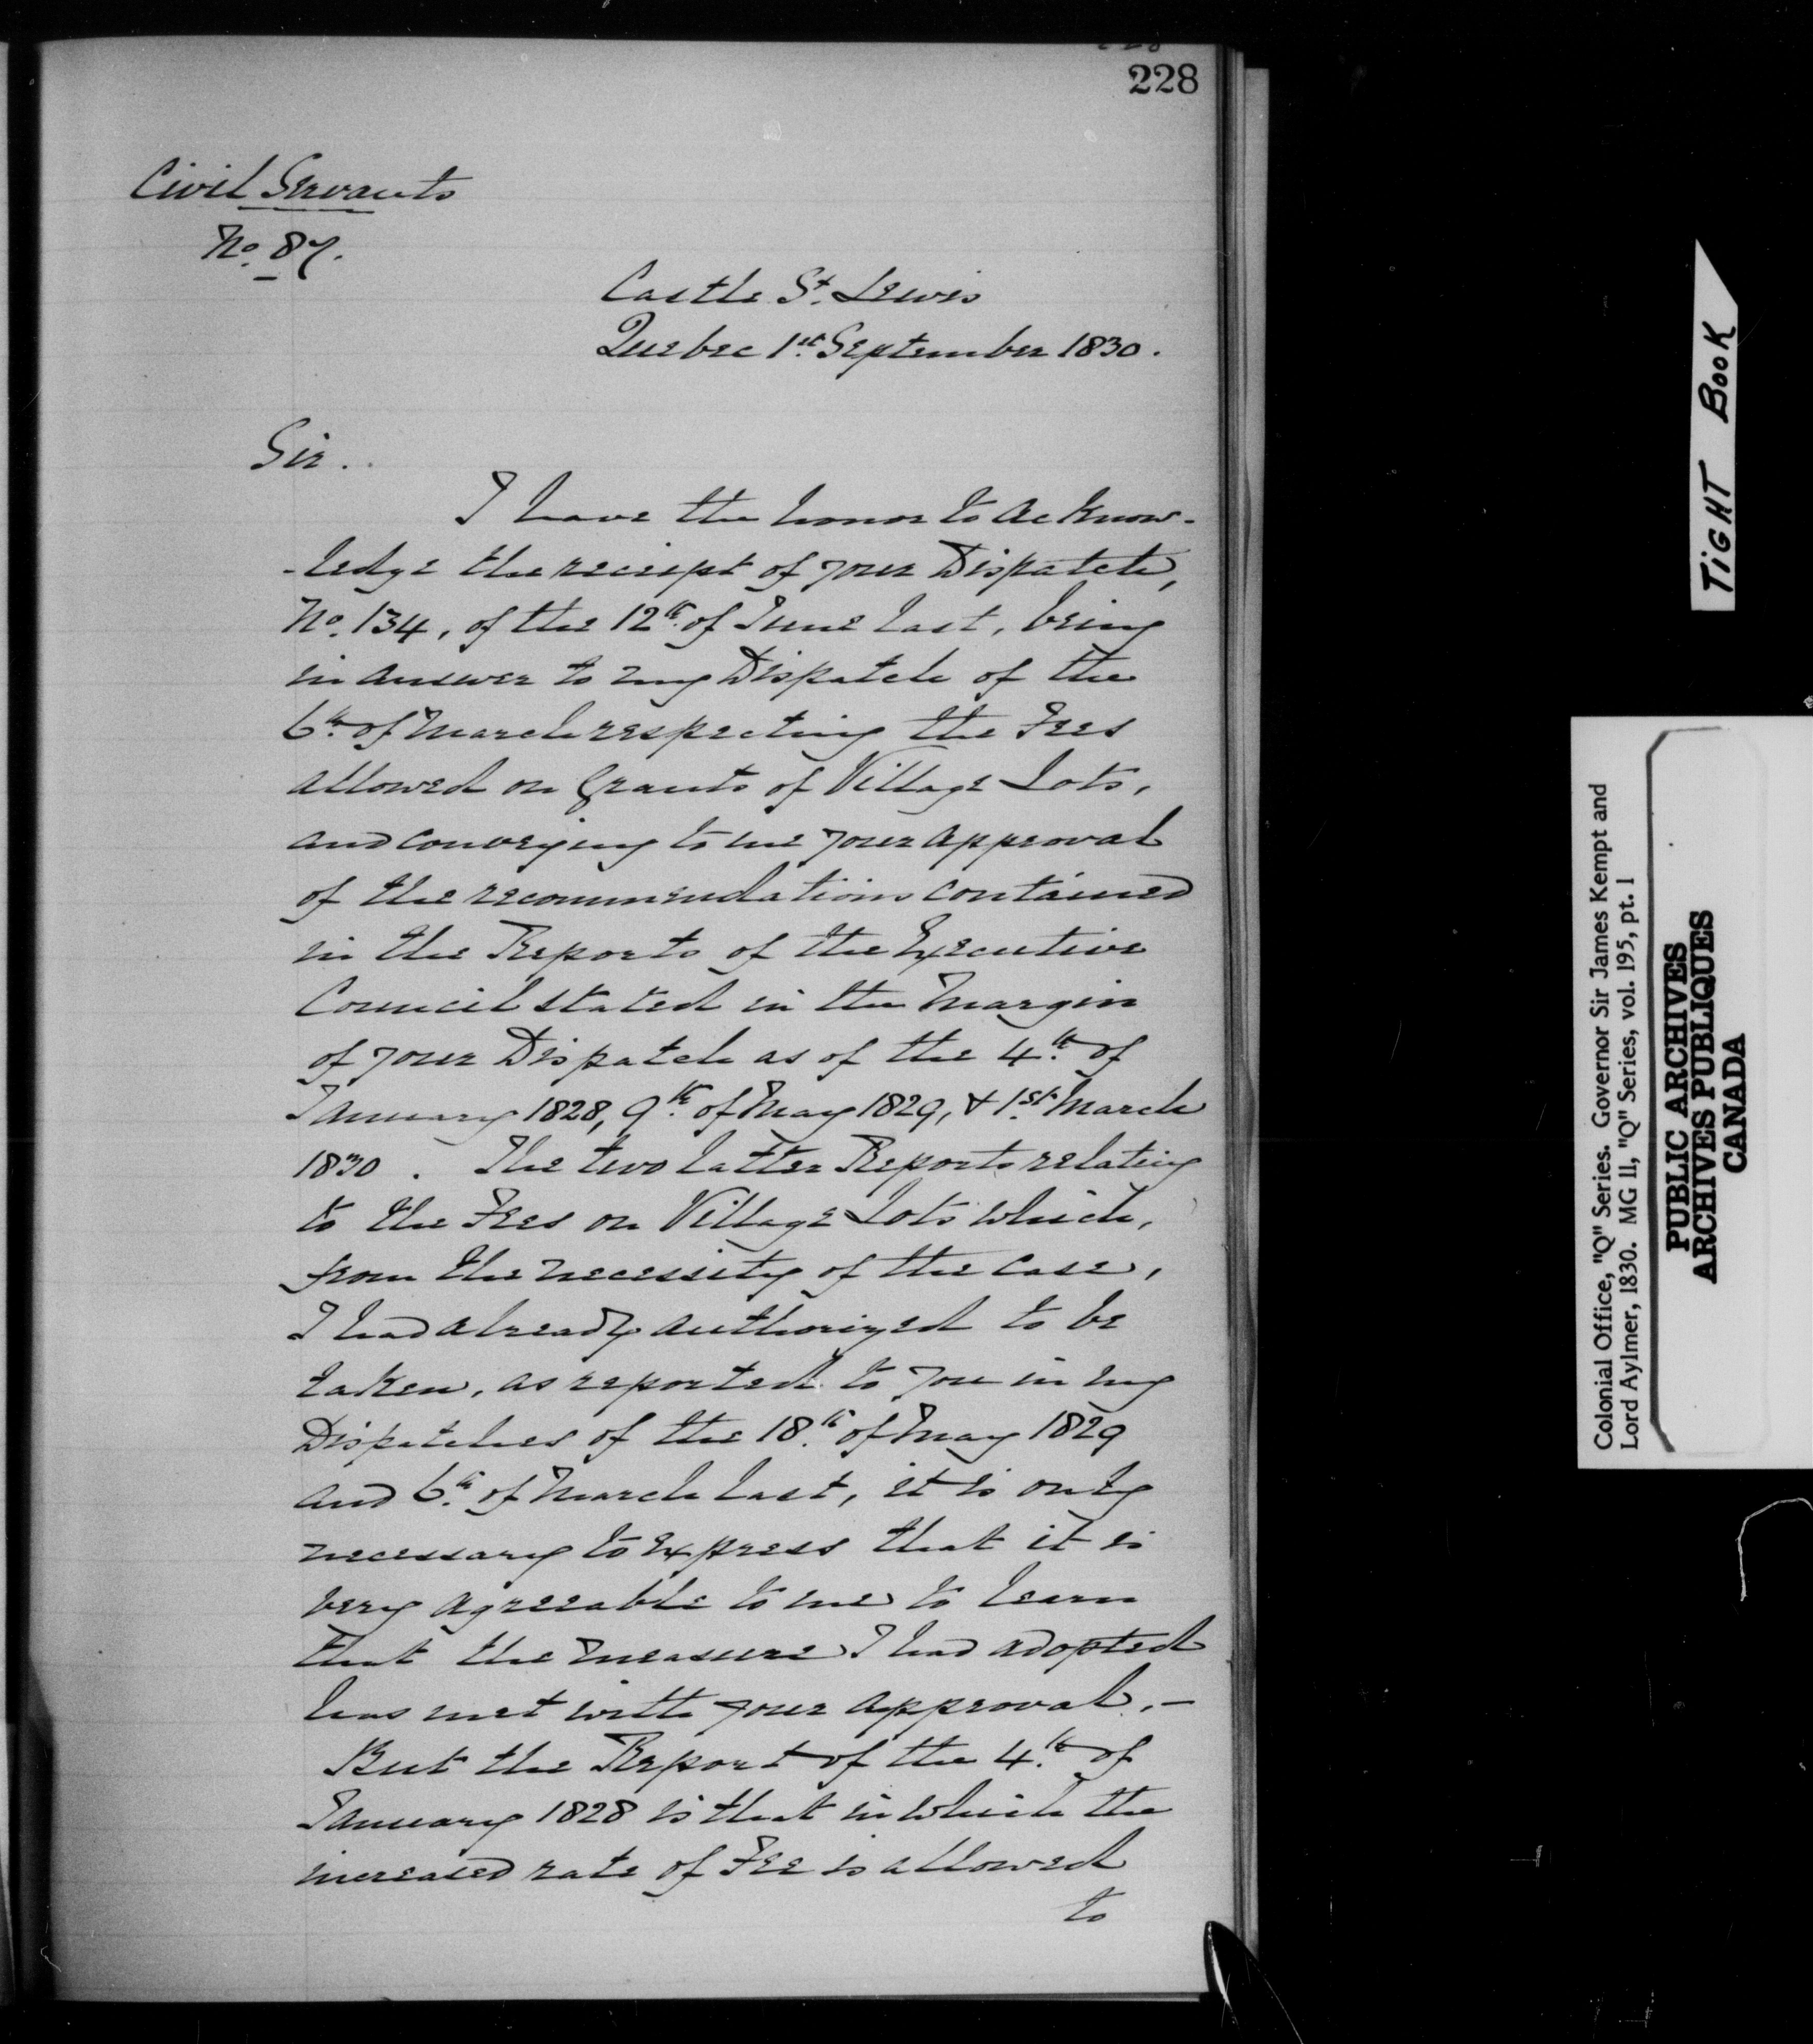 228
Civil Servants
No. 87.
Castle St. Lewis
Quebec 1st September 1830.
Sir.
I have the honor to acknow-
-ledge the receipt of your Dispatch,
No. 134, of the 12th of June last, being
in answer to my Dispatch of the
6th of March respecting the Fees
allowed on Grants of Village Lots,
and conveying to me your approval
of the recommendations contained
in the Reports of the Executive
Council stated in the Margin
of your Dispatch as of the 4th of
January 1828, 9th of May 1829, & 1st March
1830. The two latter Reports relating
to the Fees on Village Lots which,
from the necessity of the case,
I had already authorized to be
taken, as reported to you in my
Dispatches of the 18th of May 1829
and 6th of March last, it is only
necessary to express that it is
very agreeable to me to learn
that the measure I had adopted
has met with your approval. —
But the Report of the 4th of
January 1828 is that in which the
increased rate of Fee is allowed
to
TIGHT BOOK
Colonial Office, "Q" Series. Governor Sir James Kempt and
Lord Aylmer, 1830. MG 11, "Q" Series, vol. 195, pt. 1
PUBLIC ARCHIVES
ARCHIVES PUBLIQUES
CANADA